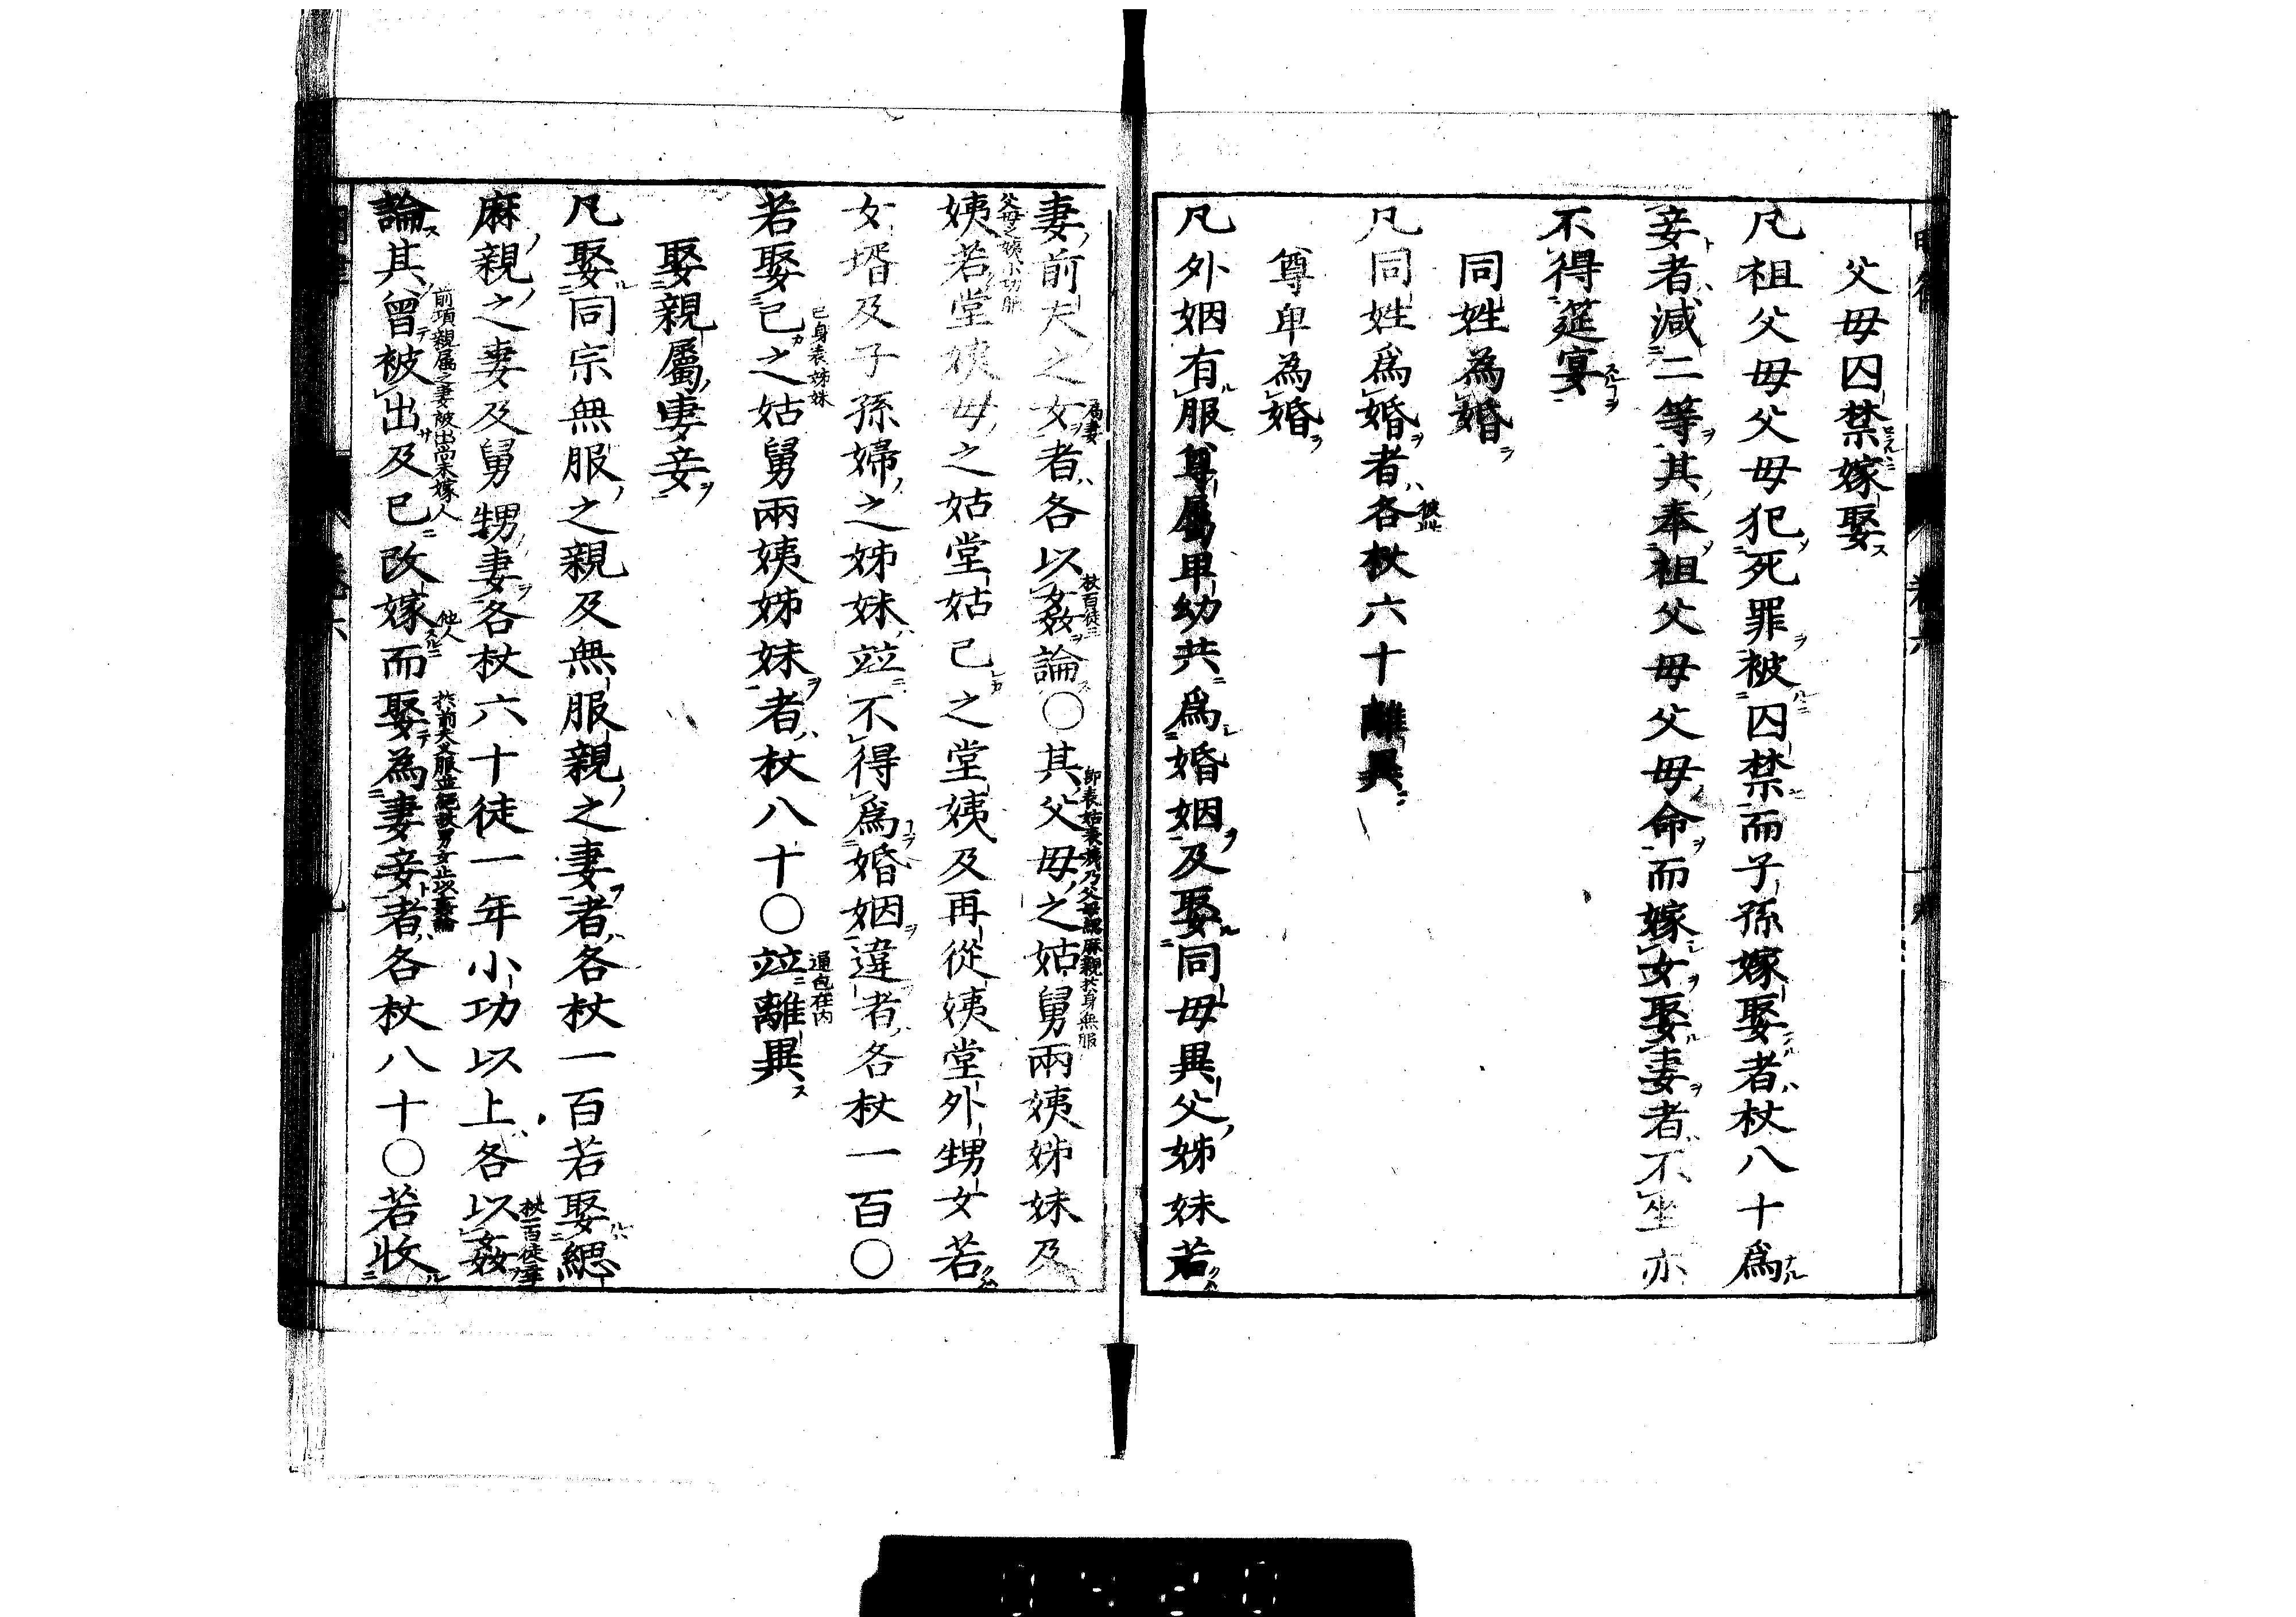 父母囚禁嫁娶
凡祖父母父母犯死罪被囚禁而子孫嫁娶者杖八十爲
妾者減二等其奉祖父母父母命而嫁女娶妻者不坐亦
不得筵宴
同姓為婚
凡同姓爲婚者各杖六十離異
彼此
尊卑為婚
凡外姻有服尊屬卑幼共爲婚姻及娶同母異父姊妹若
妻前夫之女者各以姦論○其父母之姑舅兩姨姊妹及
為妻
杖百徒三
即表姑表姨乃父母緦麻親於身無服
姨若堂姨母之姑堂姑己之堂姨及再從姨堂外甥女若
父母之姨小功服
女壻及子孫婦之姊妹竝不得爲婚姻違者各杖一百○
若娶己之姑舅兩姨姊妹者杖八十○竝離異
己身表姊妹
通包在內
娶親屬妻妾
凡娶同宗無服之親及無服親之妻者各杖一百若娶緦
麻親之妻及舅甥妻各杖六十徒一年小功以上各以姦
論其曾被出及已改嫁而娶為妻妾者各杖八十○若收
前項親屬之妻被出尚未嫁人
他人